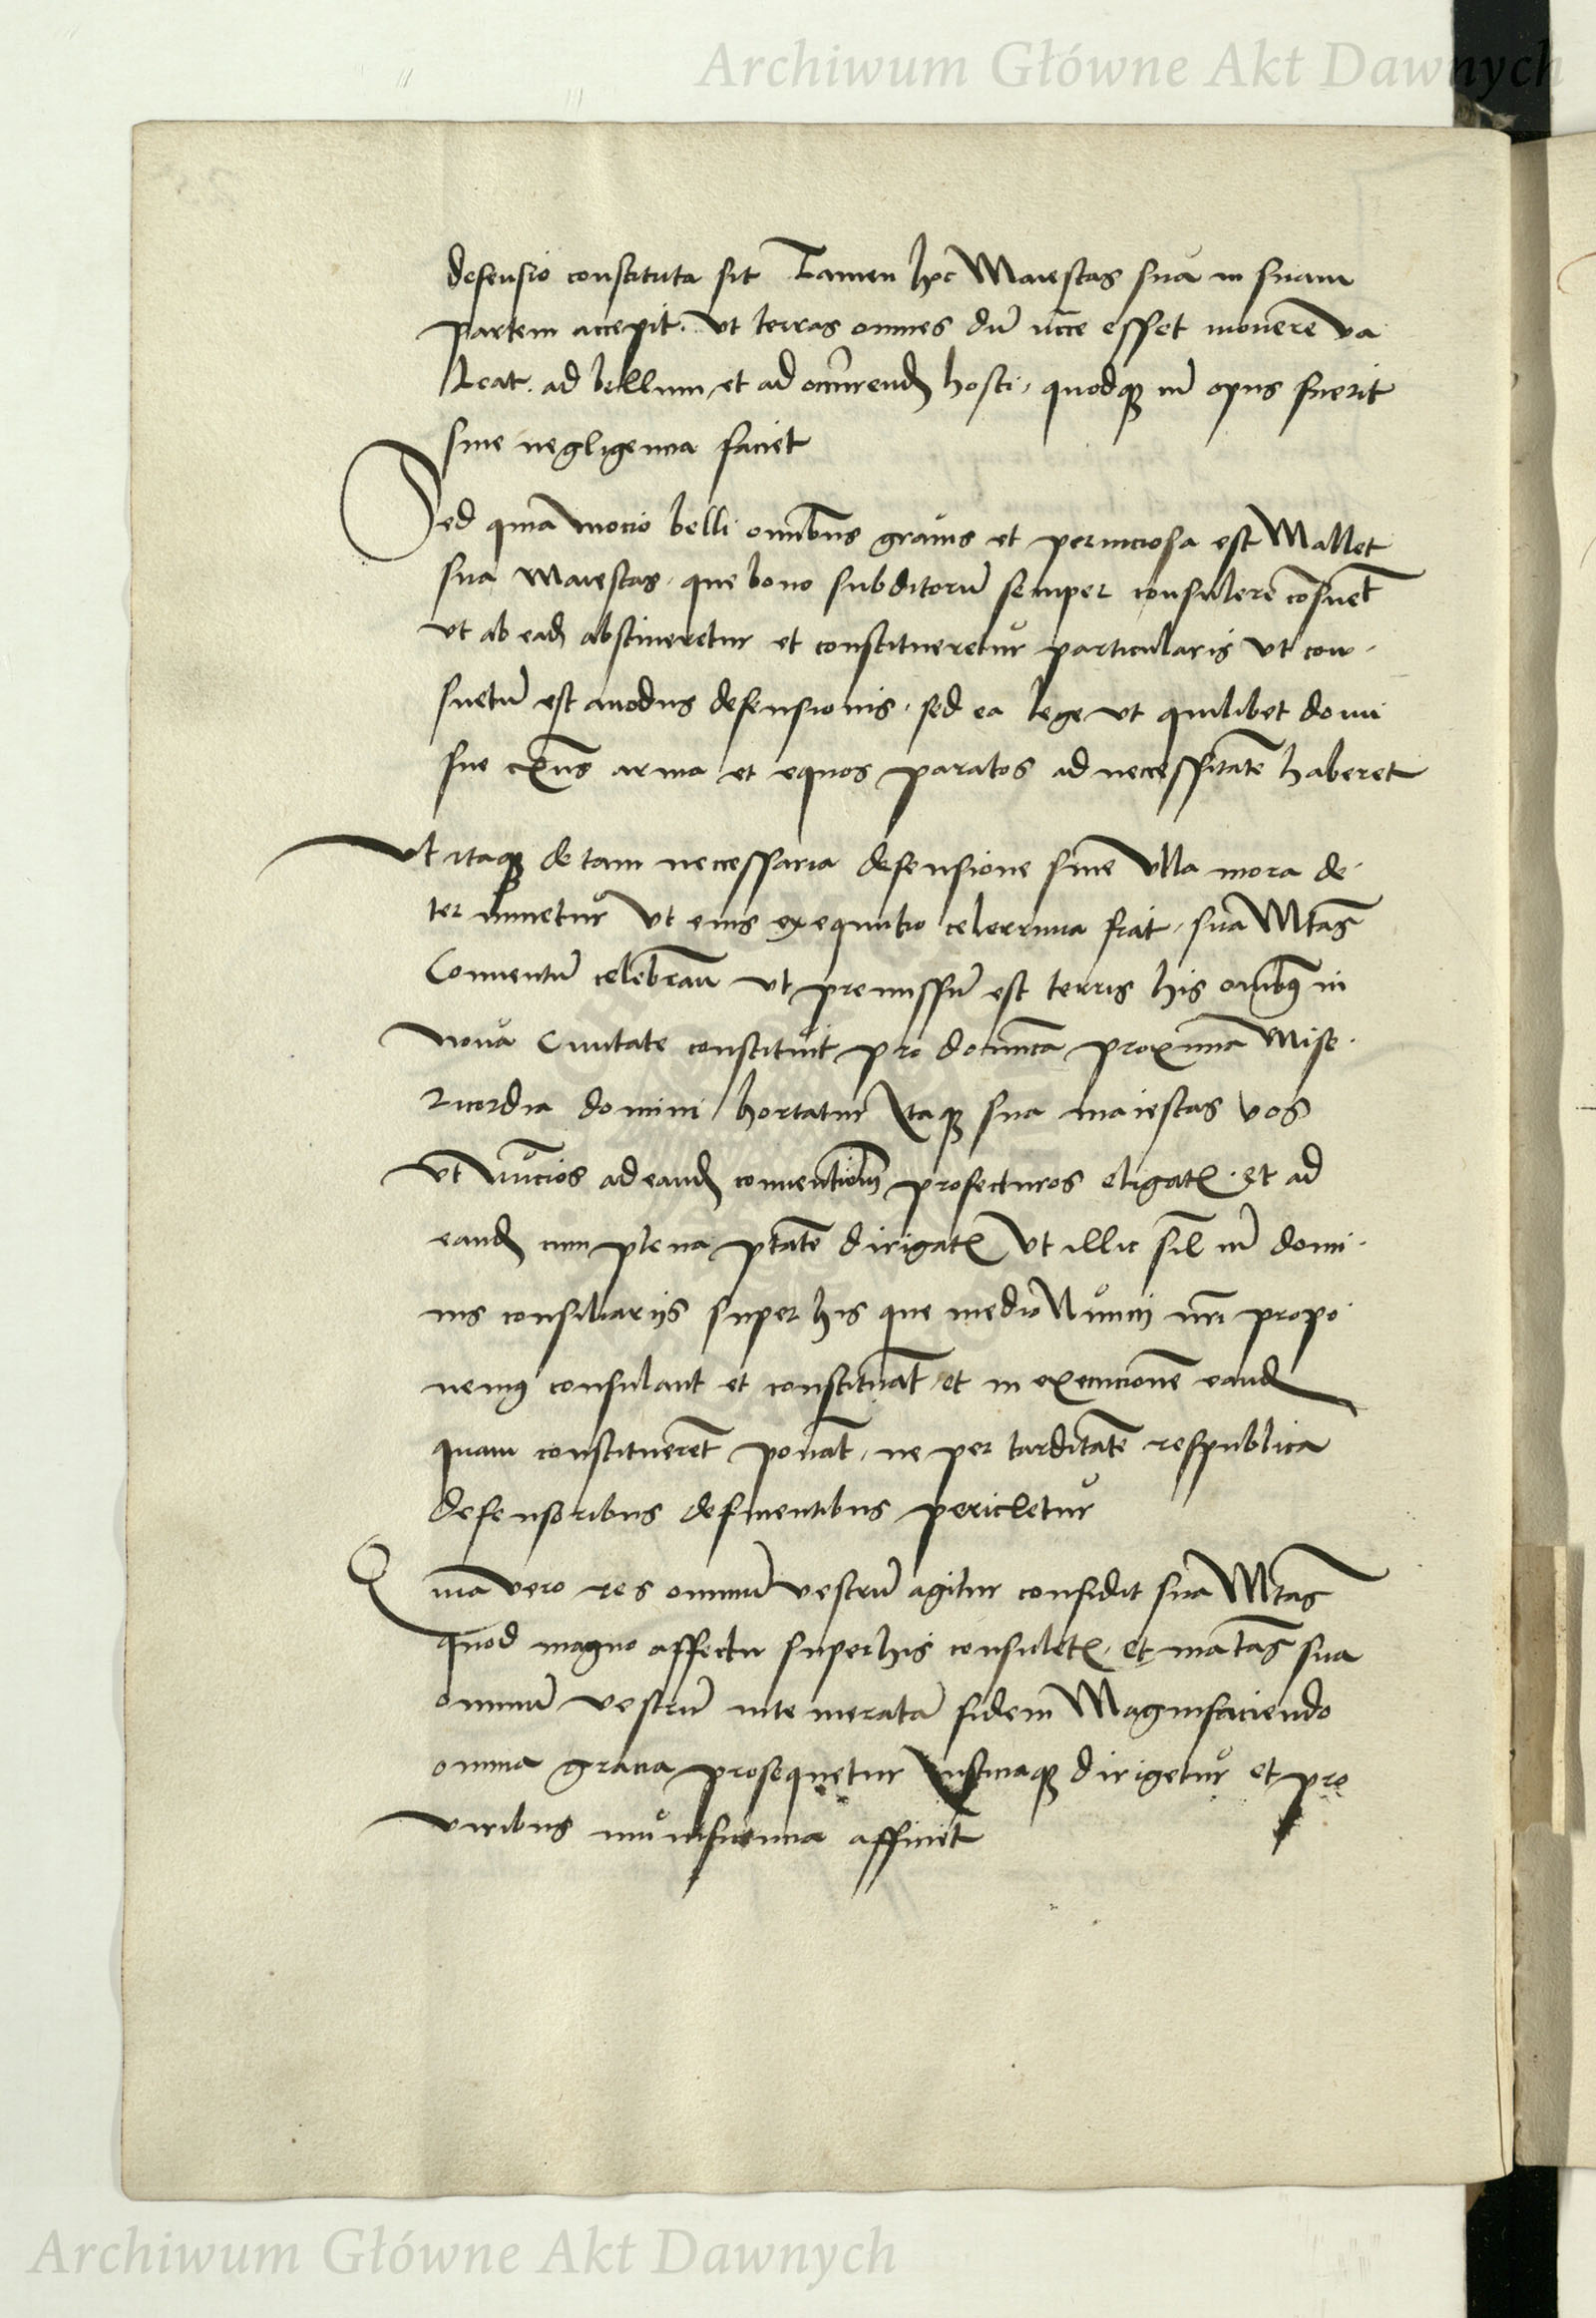 Archiwum Główne Akt Dawnych
defensio constituta sit Tamen hoc Maiestas sua in suam
partem accepit. Ut terras omnes dū ncce esset movere va
leat. ad bellum et ad occurrend hosti, quodq; in opus fuerit
sine negligencia faciet
Sed quia mocio belli omībus gravis et perniciosa est Mallet
sua Maiestas, que bono subditorū semper consulere cōsuet
ut ab ead abstineretur et constitueretur particularis ut con-
suetū est modus defensionis, sed ea lege ut quilibet domi
sue existens arma et equos paratos ad necessitatē haberet
Ut itaq; de tam necessaria defensione sine ulla mora de-
terminetur Ut eius exequutio celerrima fiat, sua Mtas
Conventū celebrari ut premissū est terris his omībꝰ in
nova Civitate constituit pro dominica proxima Mise-
ricordia domini hortatur itaq; sua maiestas vos
ut nuncios ad eand conventionē profecturos eligatis. et ad
eand cum plena ptate dirigatis Ut illic sil cū domi-
nis consiliariis super his que medio Nuncij nrī propo
nemꝰ consulant et constituāt, et in execucionē eand
quam constituerēt ponāt, ne per tarditatē respublica
defensoribus deficientibus pericletur
Quia vero res omniū vestrū agitur confidit sua Mtas
quod magno affectu super his consuletis, et matas sua
omniū vestrū intemeratā fidem Magnifaciendo
omnia gracia prosequetur iusticiaq; dirigetur et pro
viribus munificencia afficiet
Archiwum Główne Akt Dawnych